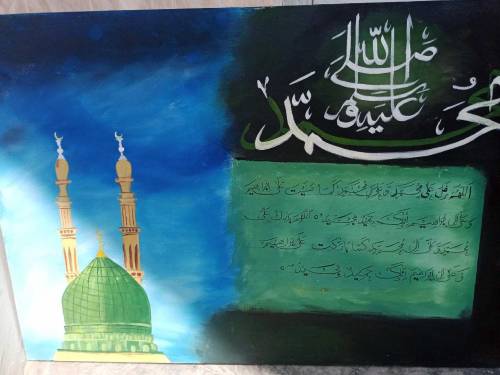 محمد
صلى الله عليه وسلم
اللهم صل على محمد وعلى آل محمد كما صليت على ابراهيم
وعلى آل ابراهيم انك حميد مجيد اللهم بارك على
محمد وعلى آل محمد كما باركت على ابراهيم
وعلى آل ابراهيم انك حميد مجيد